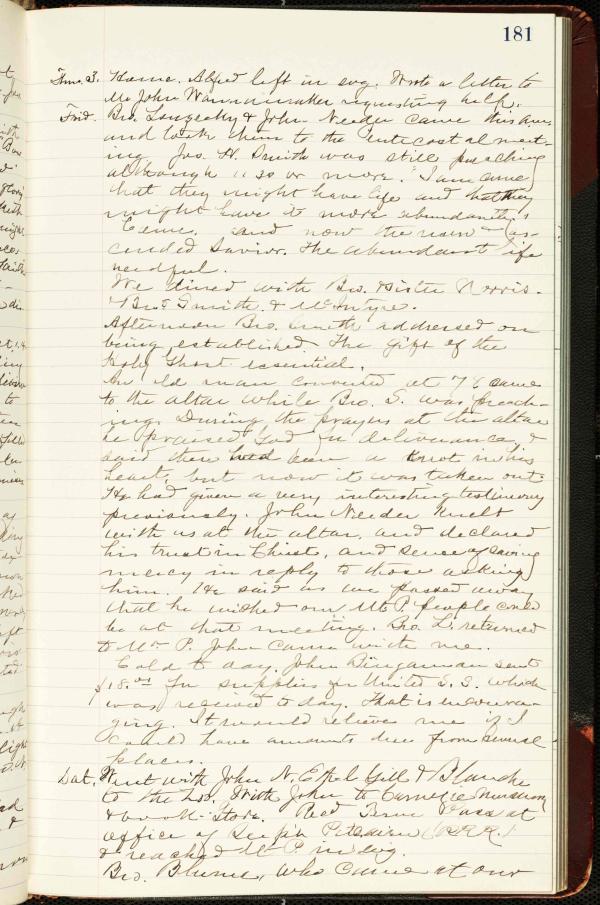 181
Thurs. 3. Home. Alfred left in evg. Wrote a letter to
Mr John Wannamaker requesting help.
Frid. Bro. Longeeky & John Needer came this
and took them to the Pentecostal meet-
ing. Jos. H. Smith was still preaching
although 11 30 or more. "I am come
that they might have life and that they
might have it more abundantly is
theme. and now the risen & as-
cended Savior. The abundant life
needful.
We dined with Bro. Sister Norris.
& Bros Smith & McIntyre.
Afternoon Bro. Smith addressed on
being established. The gift of the
Holy Ghost essential.
An old man converted at 76 came
to the altar while Bro. S. was preach-
ing. During the prayers at the altar
he praised God for deliverance, &
said there had been a knot in his
heart, but now it was taken out.
He had given a very interesting testimony
previously. John Needer knelt
with us at the altar. and declared
his trust in Christ, and sense of saving
mercy in reply to those asking
him. He said as we passed away
that he wished our Mt P. people could
be at that meeting. Bro. L. returned
to Mt P. John came with me.
Cold to day. John Bingaman sent
$18.00 for supplies for United S. S. which
was received to day. That is encoura-
ging. It would relieve me if I
could have amounts due from several
places.
Sat. Went with John N. Ethel Gill & Blanche
to the Zoo. With John to Carnegie Museum
& book-Store. Recd Term Pass at
office of Pitcairn (P.R.R.)
& reached Mt P. in evg.
Bro. Blume, who came at our